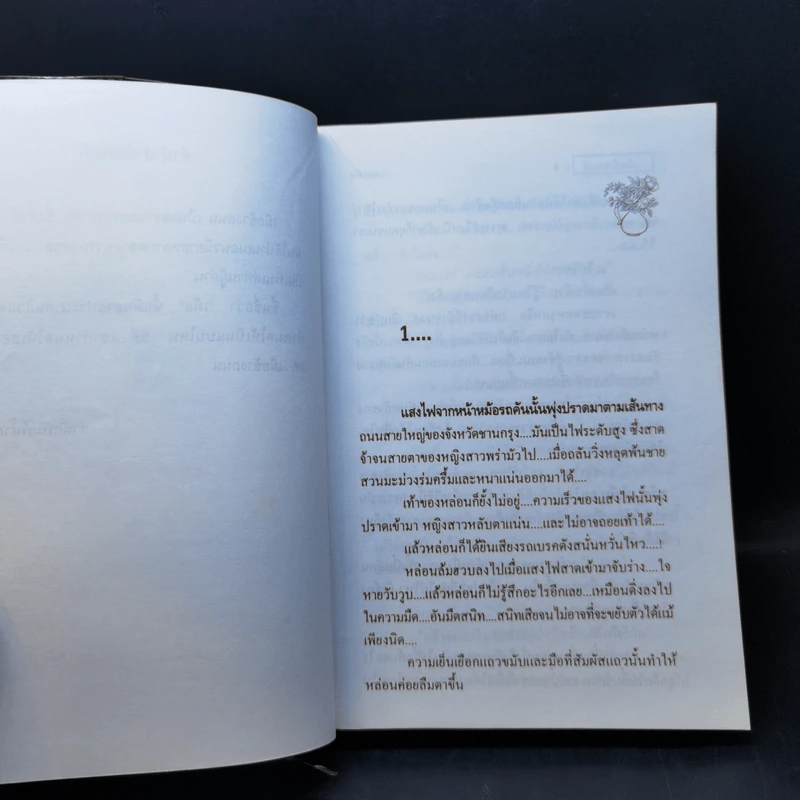 1....
แสงไฟจากหน้าหม้อรถคันนั้นพุ่งปราดมาตามเส้นทาง
ถนนสายใหญ่ของจังหวัดชานกรุง....มันเป็นไฟระดับสูง ซึ่งสาด
จ้าจนสายตาของหญิงสาวพร่ามัวไป....เมื่อถลันวิ่งหลุดพ้นชาย
สวนมะม่วงร่มครึ้มและหนาแน่นออกมาได้....
เท้าของหล่อนก็ยั้งไม่อยู่....ความเร็วของแสงไฟนั้นพุ่ง
ปราดเข้ามา หญิงสาวหลับตาแน่น....และไม่อาจถอยเท้าได้....
แล้วหล่อนก็ได้ยินเสียงรถเบรคดังสนั่นหวั่นไหว....!
หล่อนล้มฮวบลงไปเมื่อแสงไฟสาดเข้ามาจับร่าง....ใจ
หายวับวูบ....แล้วหล่อนก็ไม่รู้สึกอะไรอีกเลย....เหมือนดิ่งลงไป
ในความมืด....อันมืดสนิท....สนิทเสียจนไม่อาจที่จะขยับตัวได้แม้
เพียงนิด....
ความเย็นเยือกแถวขมับและมือที่สัมผัสแถวนั้นทำให้
หล่อนค่อยลืมตาขึ้น